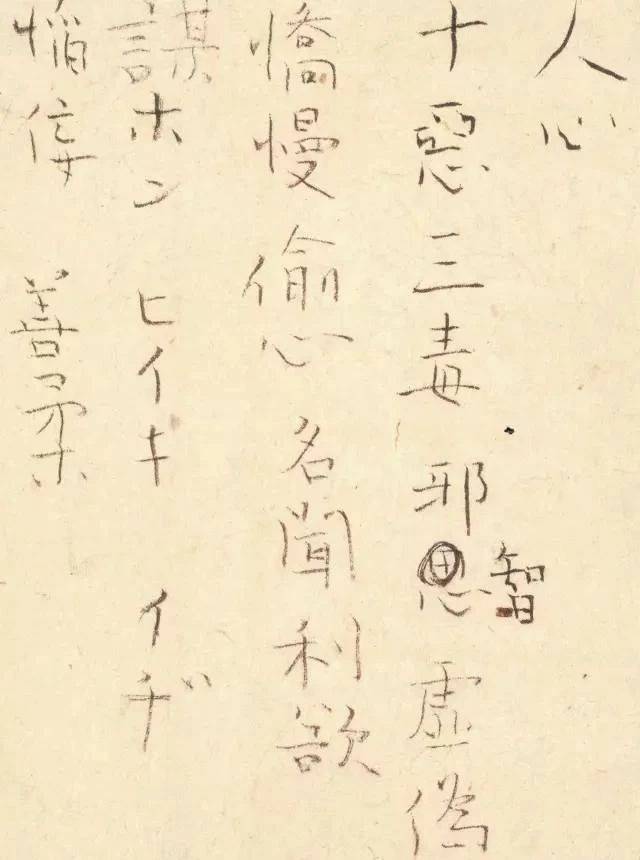 人心
十惡三毒 邪思智 虚偽
憍慢 偷心 名聞利欲
謀ホン ヒイキ イヂ
惱倿 善柔